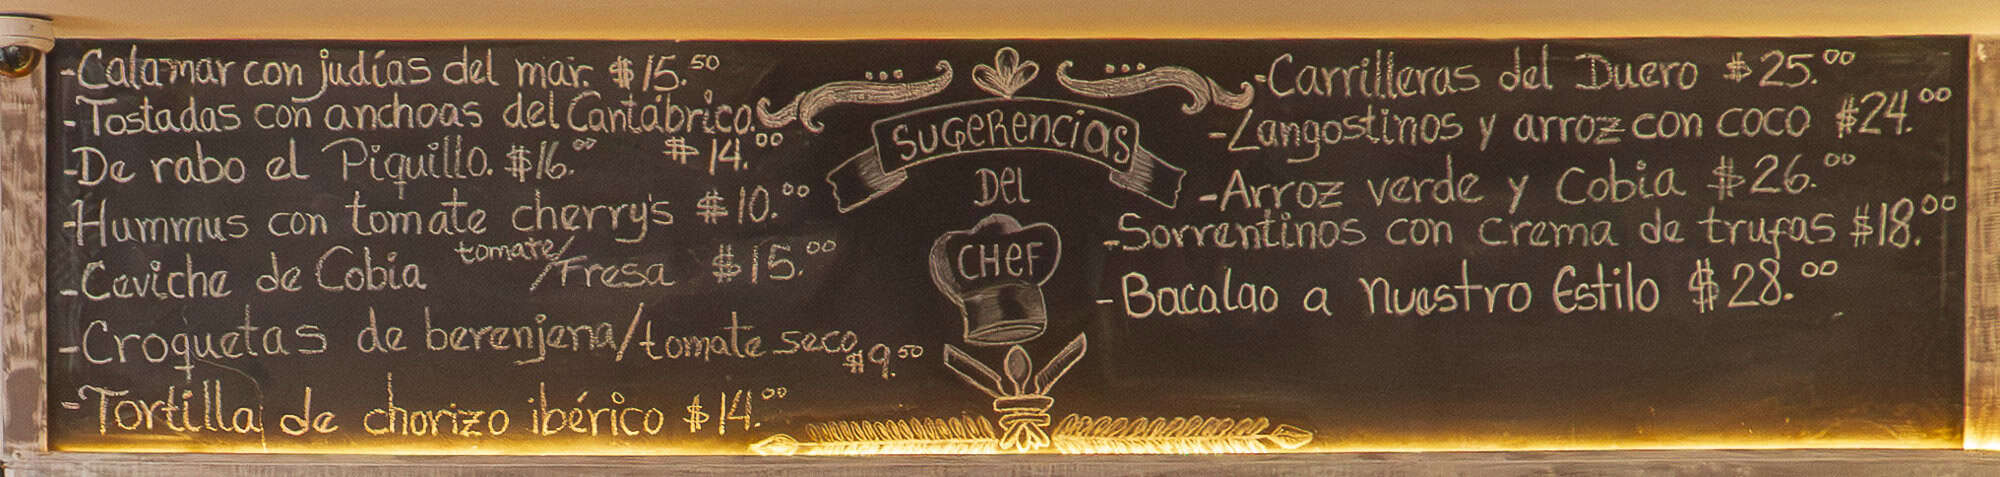 -Calamar con judías del mar. $15.50
-Tostadas con anchoas del Cantábrico. $14.00
-De rabo el Piquillo. $16.00
-Hummus con tomate cherry's $10.00
-Ceviche de Cobia tomate/Fresa $15.00
-Croquetas de berenjena/tomate seco $9.50
-Tortilla de chorizo ibérico $14.00
SUGERENCIAS
Del
CHEF
-Carrilleras del Duero $25.00
-Langostinos y arroz con coco $24.00
-Arroz verde y Cobia $26.00
-Sorrentinos con crema de trufas $18.00
-Bacalao a nuestro Estilo $28.00